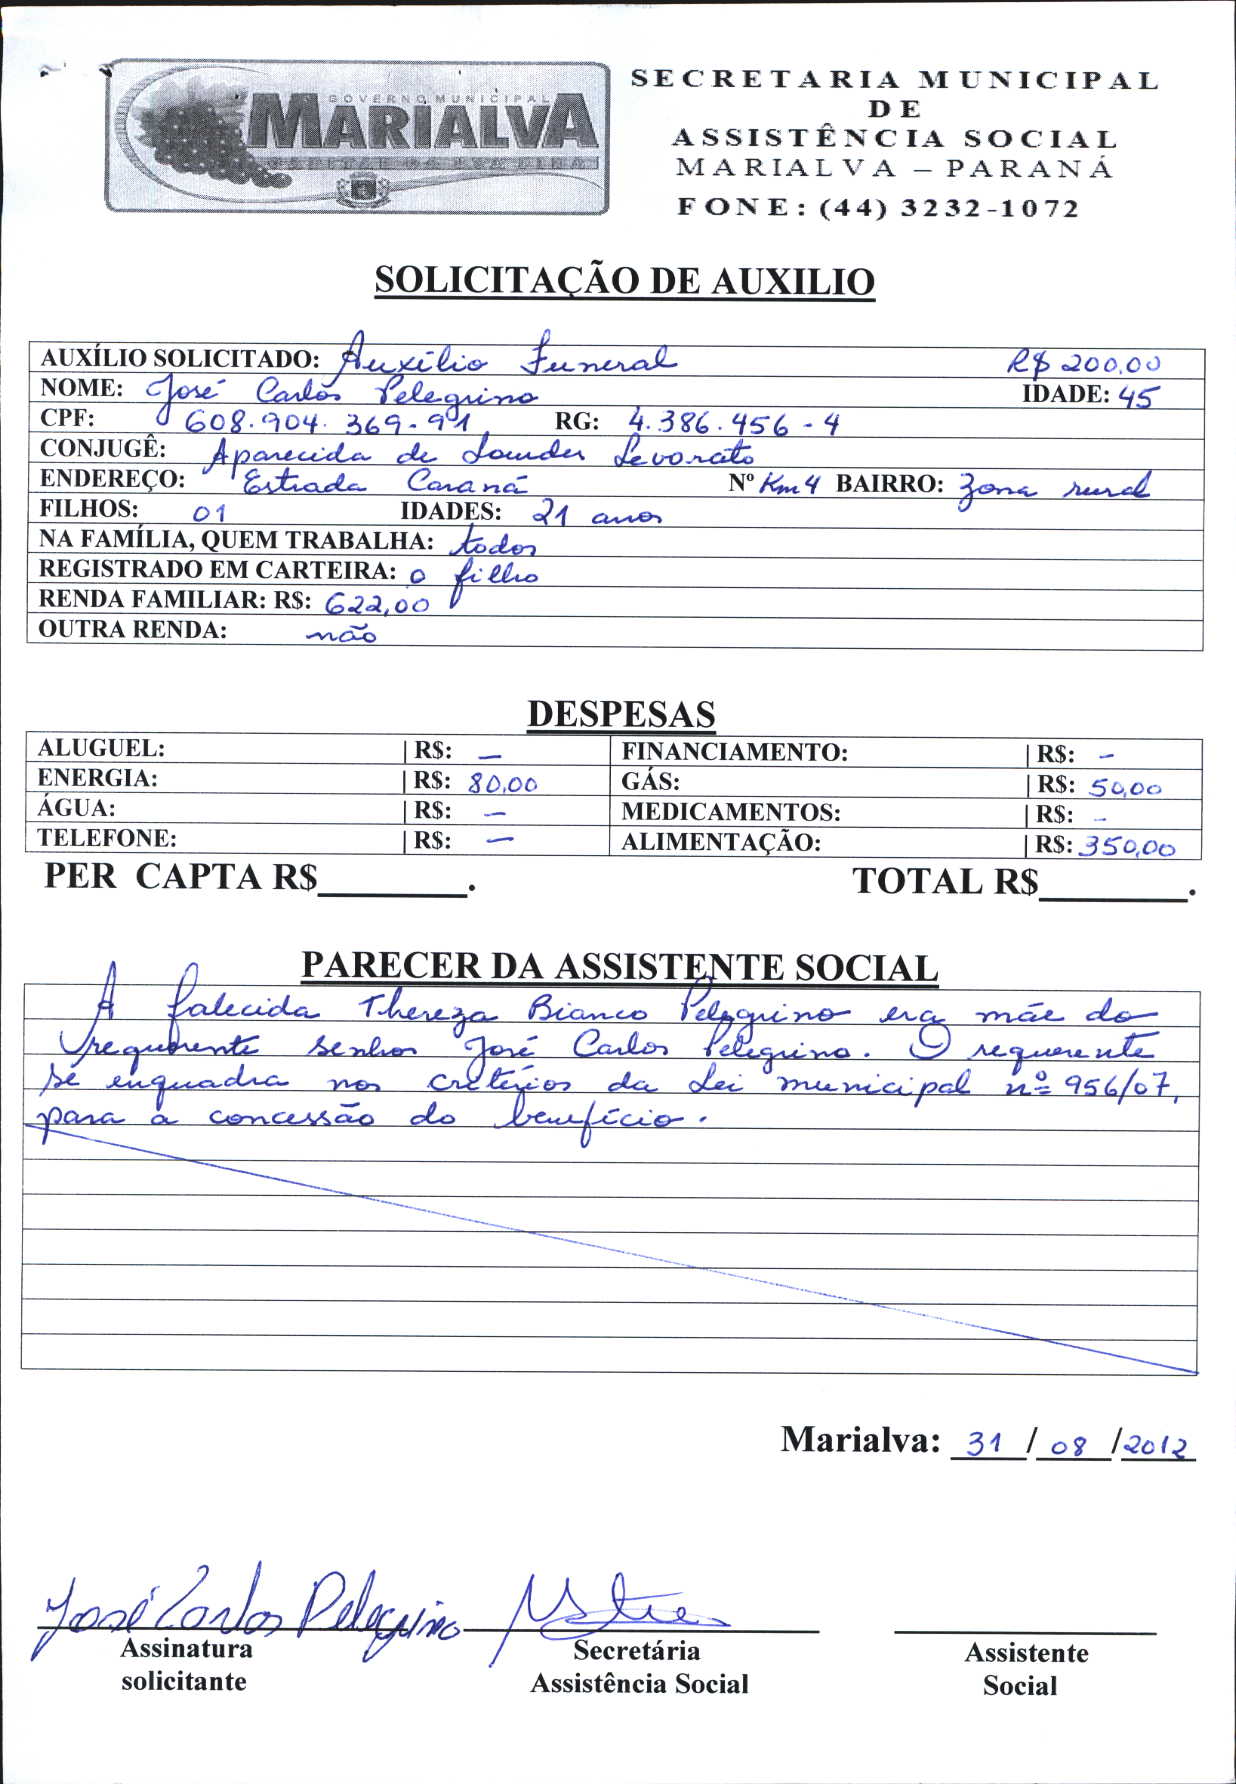 GOVERNO MUNICIPAL
MARIALVA
CAPITAL DA UVA FINA
SECRETARIA MUNICIPAL
DE
ASSISTÊNCIA SOCIAL
MARIALVA – PARANÁ
FONE: (44) 3232-1072
SOLICITAÇÃO DE AUXILIO
AUXÍLIO SOLICITADO: Auxílio Funeral R$ 200,00
NOME: José Carlos Pelegrino IDADE: 45
CPF: 608.904.369-91 RG: 4.386.456-4
CONJUGÊ: Aparecida de Lourdes Levorato
ENDEREÇO: Estrada Caraná Nº Km 4 BAIRRO: Zona rural
FILHOS: 01 IDADES: 21 anos
NA FAMÍLIA, QUEM TRABALHA: todos
REGISTRADO EM CARTEIRA: o filho
RENDA FAMILIAR: R$: 622,00
OUTRA RENDA: não
DESPESAS
ALUGUEL: | R$: — FINANCIAMENTO: | R$: -
ENERGIA: | R$: 80,00 GÁS: | R$: 50,00
ÁGUA: | R$: — MEDICAMENTOS: | R$: -
TELEFONE: | R$: — ALIMENTAÇÃO: | R$: 350,00
PER CAPTA R$________. TOTAL R$________.
PARECER DA ASSISTENTE SOCIAL
A falecida Thereza Bianco Pelegrino era mãe do
requerente senhor José Carlos Pelegrino. O requerente
se enquadra nos critérios da Lei municipal nº 956/07,
para a concessão do benefício.
Marialva: 31 / 08 /2012
José Carlos Pelegrino
Assinatura Secretária Assistente
solicitante Assistência Social Social